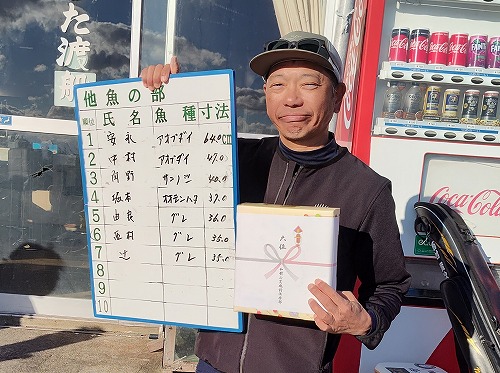 た渡
他魚の部
順位 氏名 魚種 寸法
1 安永 アオブダイ 64.0cm
2 中村 アオブダイ 47.0
3 岡野 サンノジ 40.0
4 坂本 オオモンハタ 37.0
5 由良 グレ 36.0
6 西村 グレ 35.0
7 辻 グレ 35.0
8
9
10
六位
Coca-Cola